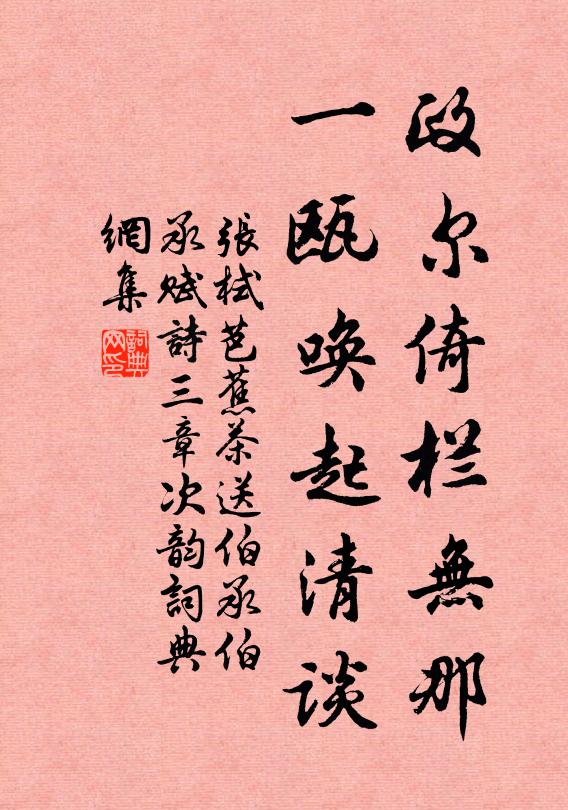 政尔倚栏無那
一瓯唤起清谈
張栻芭蕉茶送伯承伯
承赋詩三章次韵詞典
網集
詞典
网印